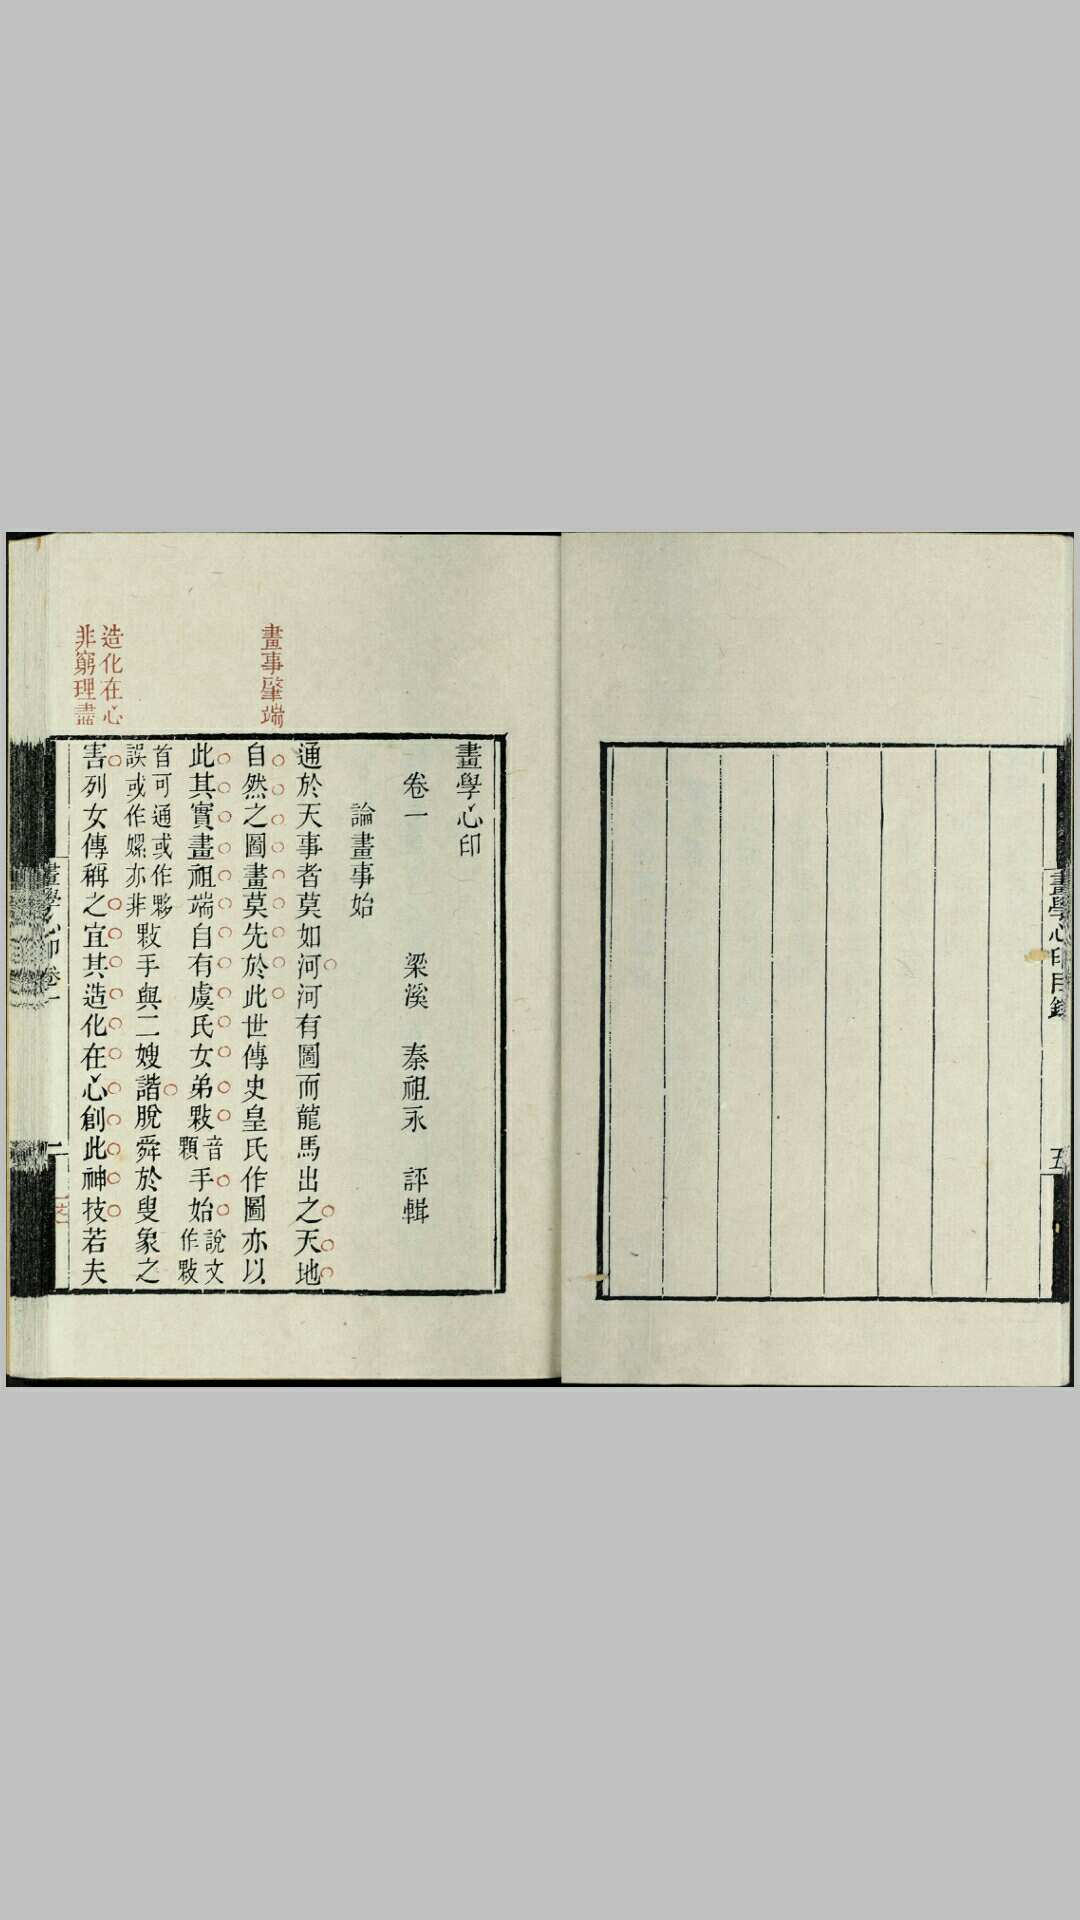 畫學心印目錄
五
畫學心印
卷一 梁溪 秦祖永 評輯
論畫事始
通於天事者莫如河河有圖而龍馬出之天地
畫事肇端
自然之圖畫莫先於此世傳史皇氏作圖亦以
此其實畫祖端自有虞氏女弟敤音顆手始說文作敤
首可通或作夥誤或作嫘亦非敤手與二嫂諧脫舜於叟象之
造化在心
非窮理盡
害列女傳稱之宜其造化在心創此神技若夫
畫學心印 卷一
一